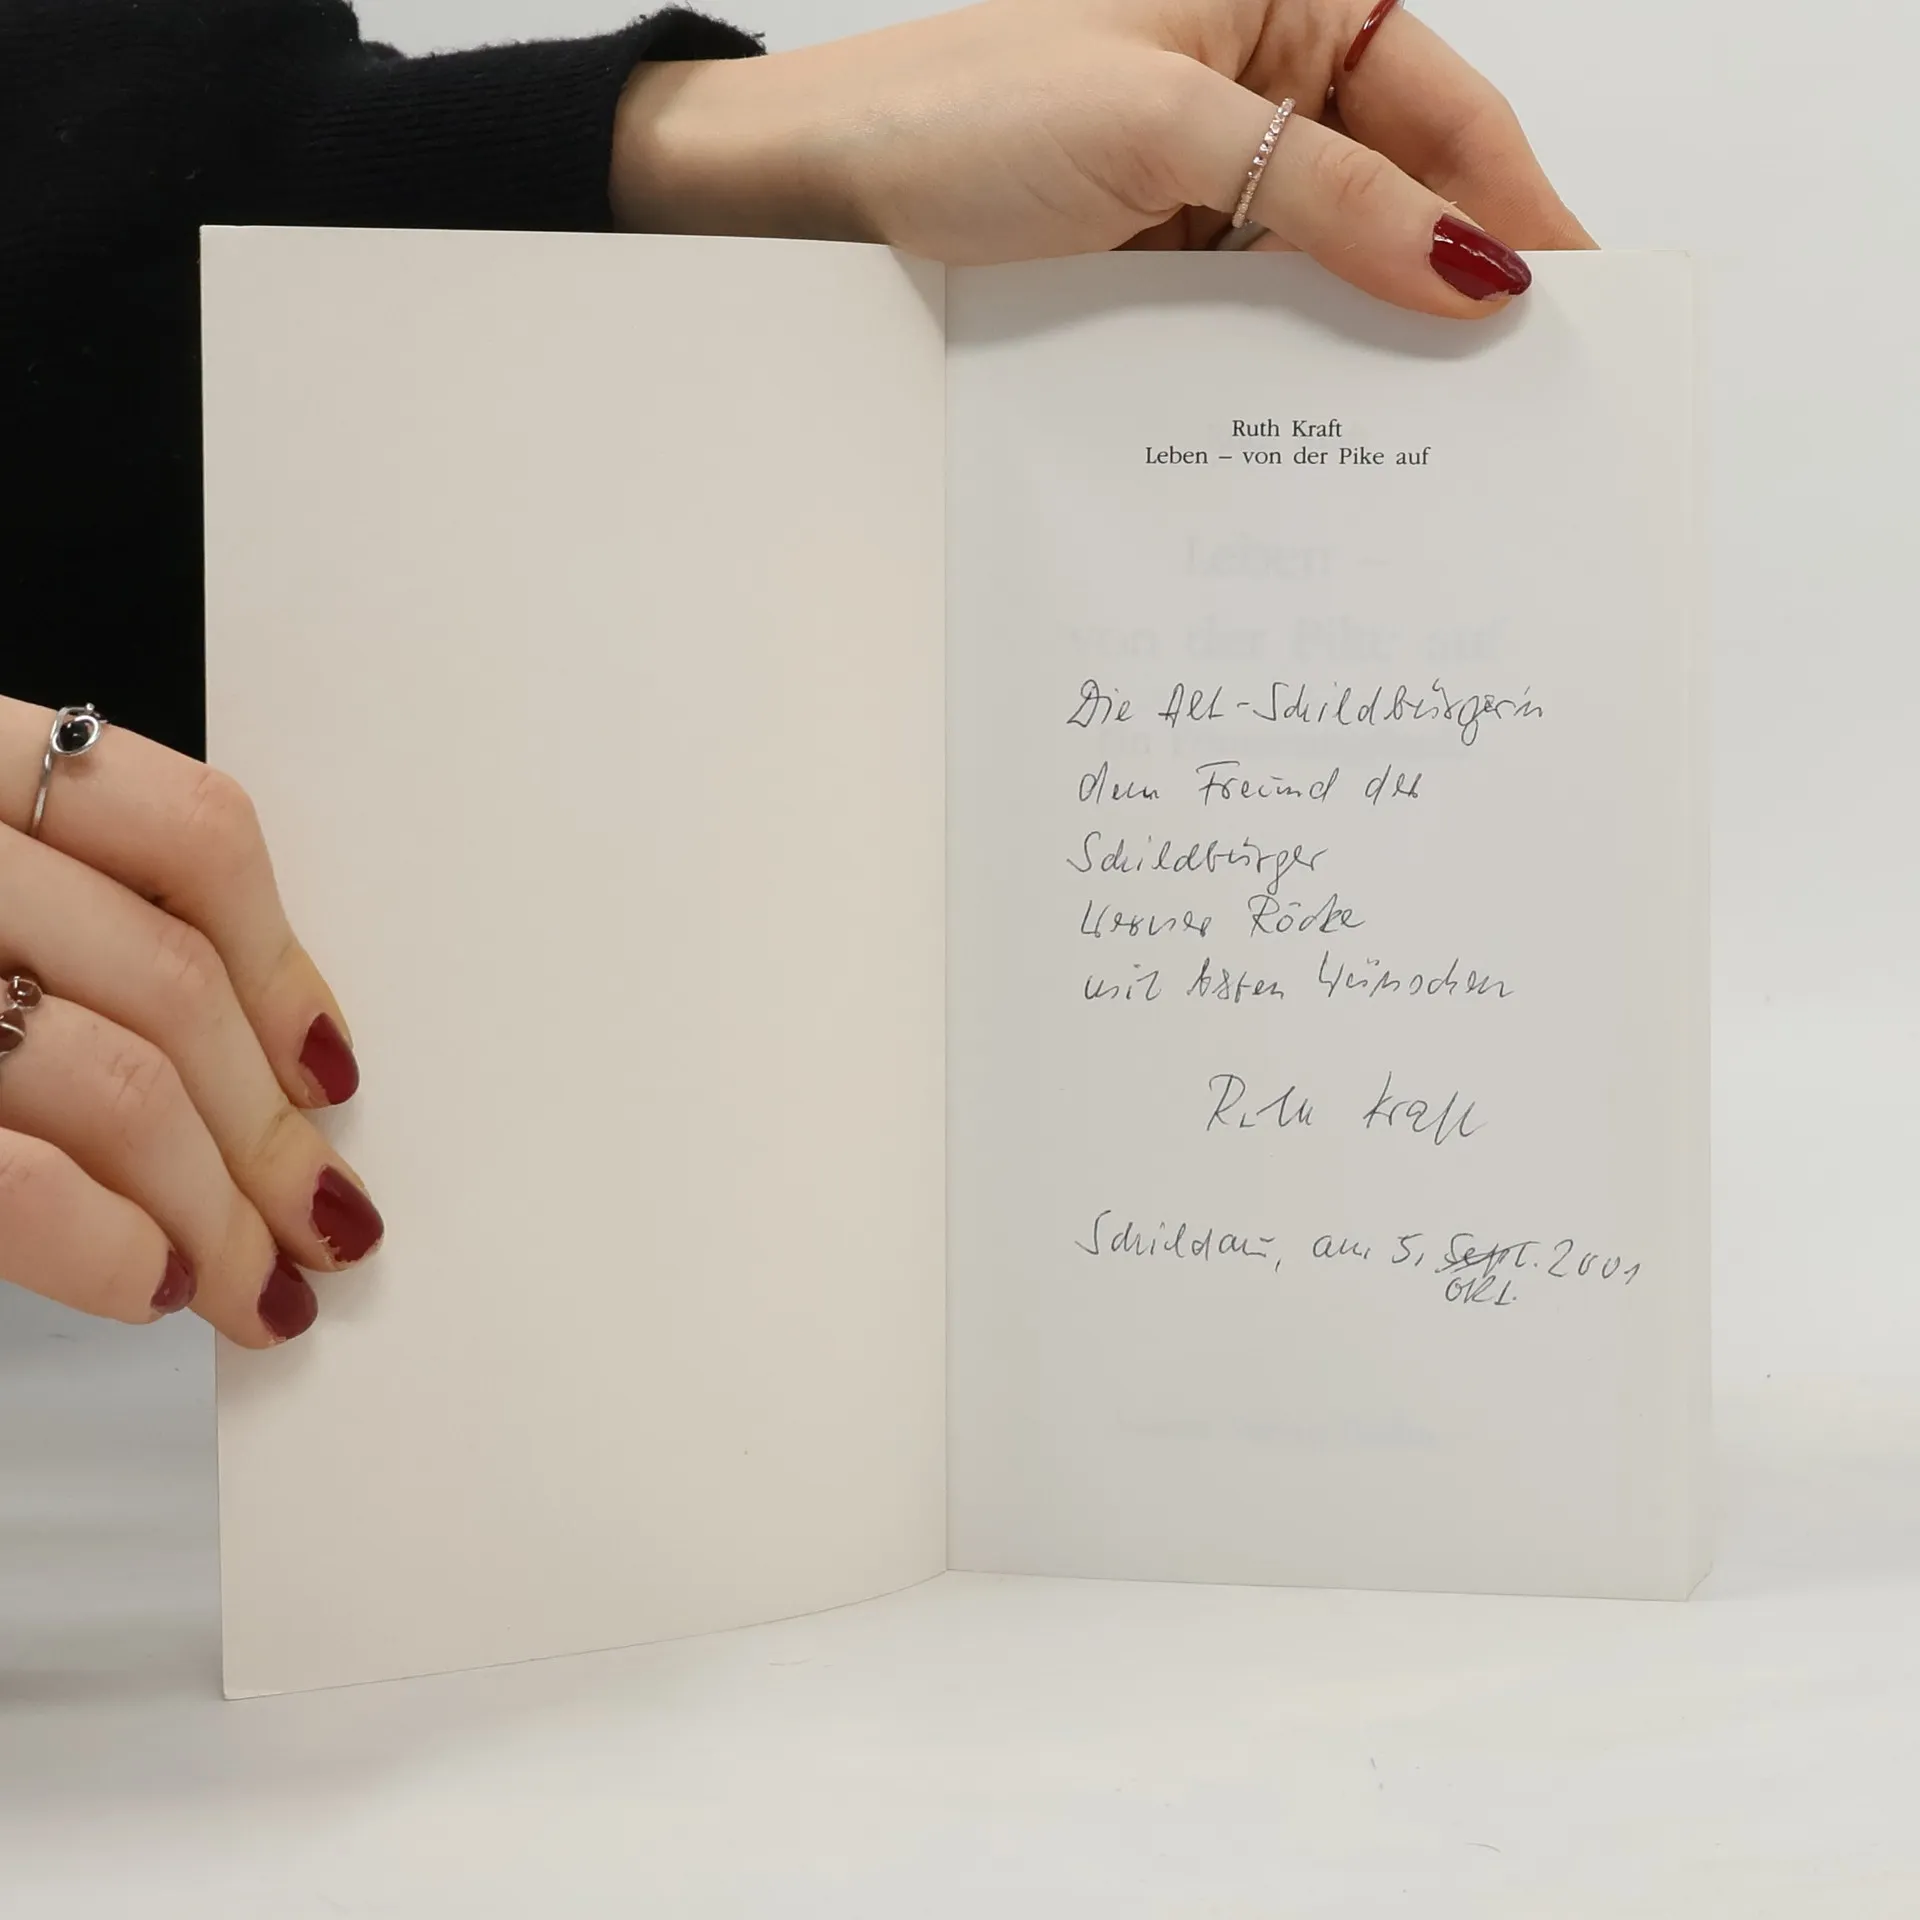 Ruth Kraft
Leben – von der Pike auf
Leben –
von der Pike auf
Die Alt-Schildbürgerin
dem Freund der
Schildbürger
Werner Röcke
mit besten Wünschen
Ruth Kraft
Schildau, am 5. Sept. 2001
Okt.